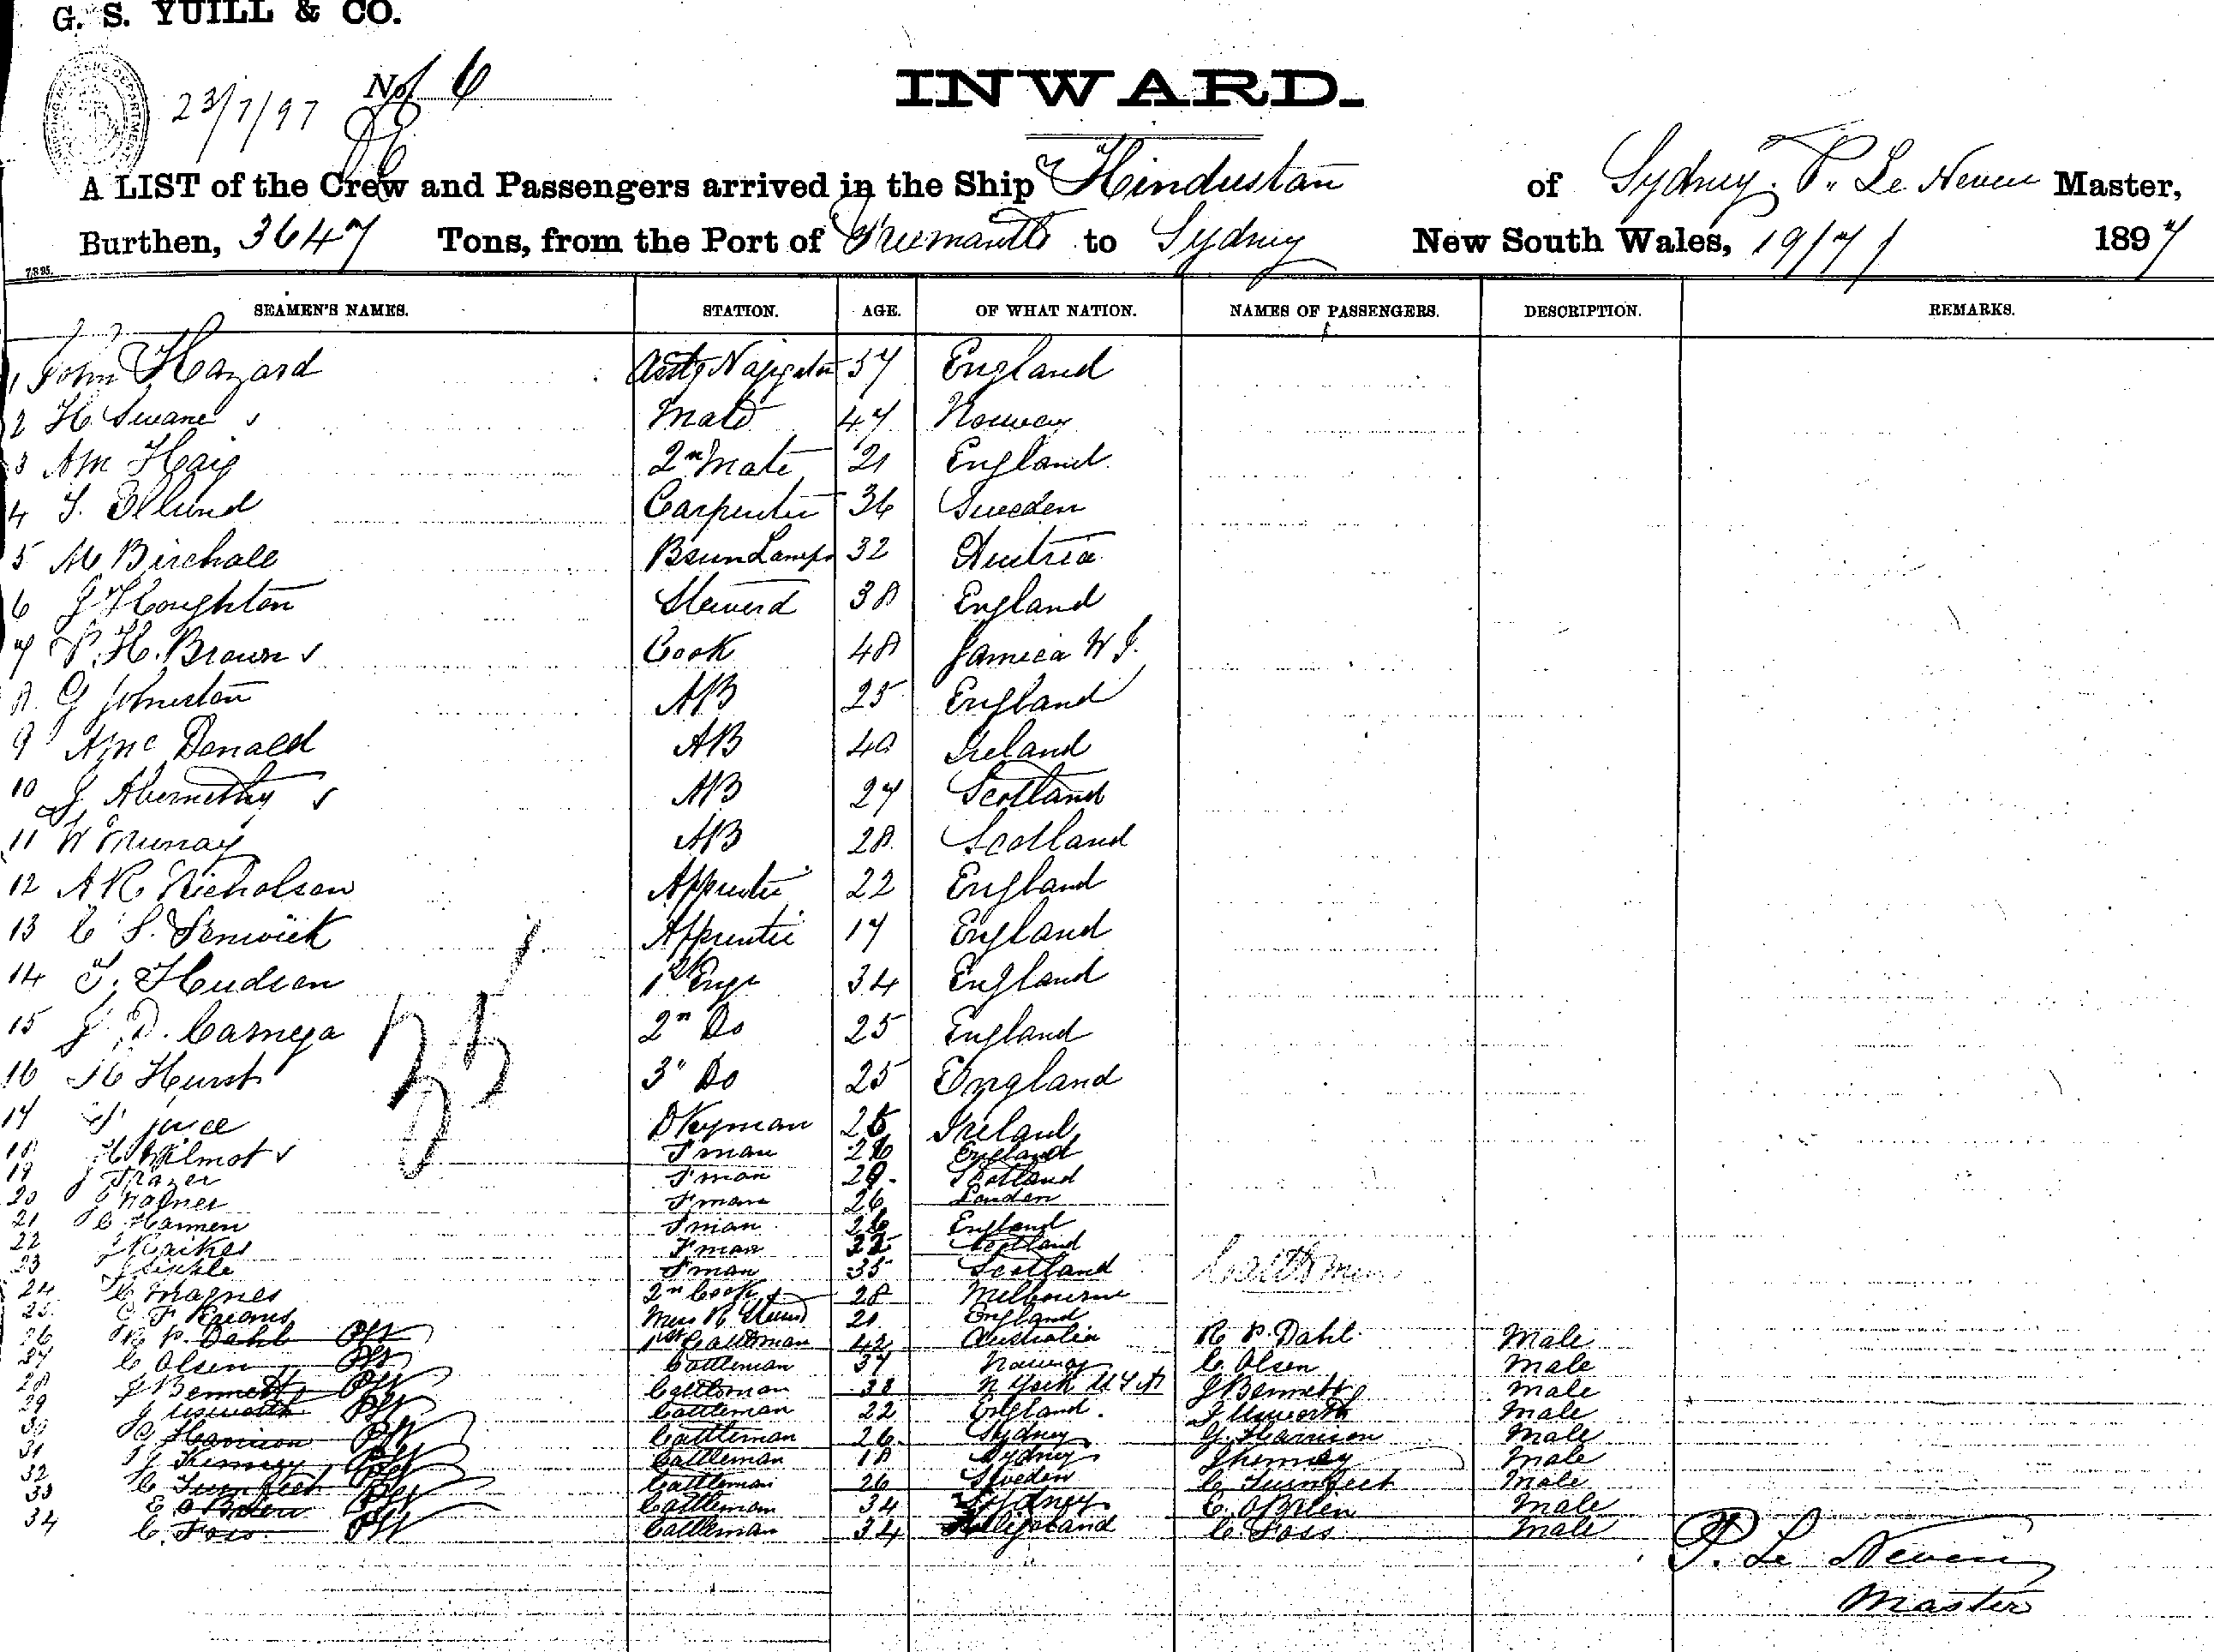 G. S. YUILL & CO.
23/7/97 No 6
INWARD.
A LIST of the Crew and Passengers arrived in the Ship Hindustan of Sydney. P. Le Neven Master,
Burthen, 3647 Tons, from the Port of Fremantle to Sydney New South Wales, 19/7/ 1897
7.8.95.
SEAMEN'S NAMES. STATION. AGE. OF WHAT NATION. NAMES OF PASSENGERS. DESCRIPTION. REMARKS.
1 John Hazard 37 England
2 H. Swane Mate 47 Norway
3 AM Haig 2n Mate 21 England
4 Carpenter 36 Sweden
5 M Birchall Bsun Lamps 32 Austria
6 J Houghton Steward 38 England
7 P. H. Brown Cook 48 Jamica W I.
8 G Johnston AB 25 England
9 A Mc Donald AB 40 Ireland
10 J Abernethy AB 27 Scotland
11 W Murray AB 28 Scotland
12 A R Nicholson Apprentic 22 England
13 C S. Fenwick Apprentic 17 England
14 T. Hudson 1st Engr 34 England
15 J. D. Carnega 2n Do 25 England
16 H Hurst 3" Do 25 England
17 Joice DKeyman Ireland
18 H Wilmot Fman England
19 J Frazer Fman Scotland
20 J Wagner Fman 26 London
21 C Harmen Fman 26 England
22 J Raikes Fman 22 Scotland
23 Fman 35 Scotland
24 C Magnes 2n Cook 28 Melbourne
25 C F 21 England
Cattlemen
26 R P. Dahl 1st Cattleman 42 Australia R P. Dahl Male
27 C Olsen Cattleman 37 Norway C. Olsen Male
28 J Bennett Cattleman 38 N York J Bennett Male
29 J Usworth Cattleman 22 England J Usworth Male
30 G Harrison Cattleman 26 Sydney G. Harrison Male
31 J Kenney Cattleman 18 Sydney J Kenney Male
32 C Turnfeet Cattleman 26 Sweden C Turnfeet Male
33 E O Brien Cattleman 34 Sydney E. OBrien Male
34 C. Foss Cattleman 34 Heligoland C Foss Male
P. Le Neven
Master